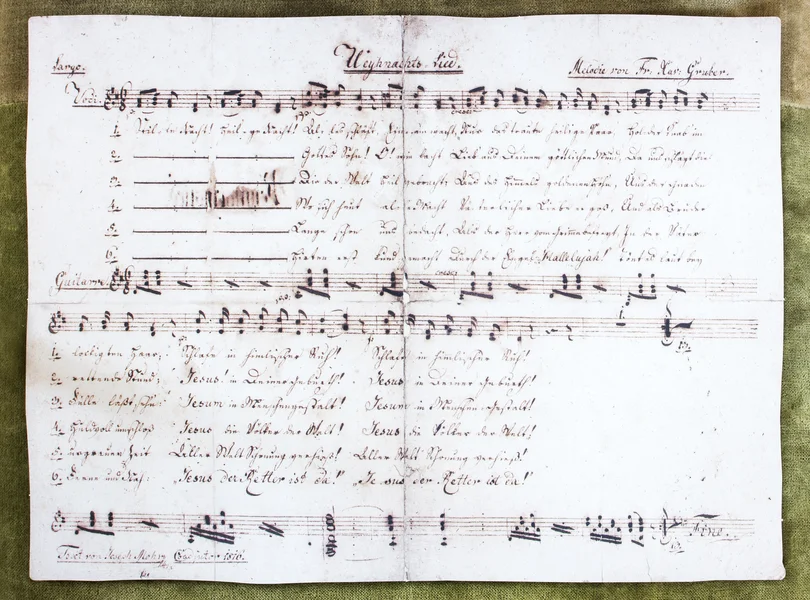 Largo. Weyhnachts-Lied. Melodie von Fr. Xav: Gruber.
Voci.
1. Stille Nacht! Heilige Nacht! Alles schläft, Einsam wacht, Nur das traute heilige Paar, Holder Knab im
2. Gottes Sohn! O! wie lacht Lieb aus Deinem göttlichen Mund, Da uns schlägt die
3. Die der Welt Heil gebracht; Aus des Himmels goldenen Höhn, Uns der Gnaden
4. Wo sich heut alle Macht Väterlicher Liebe ergoß, Und als Bruder
5. Lange schon uns bedacht, Als der Herr vom Grimme befreyt, In der Väter
6. Hirten erst kund gemacht Durch der Engel Hallelujah! Tönt es laut bey
Guitarre.
1. lockigten Haar; Schlafe in himlischer Ruh! Schlafe in himlischer Ruh!
2. rettende Stund; Jesus! in Deiner Geburth! Jesus in Deiner Geburth!
3. Fülle läßt sehn: Jesum in Menschengestalt! Jesum in Menschengestalt!
4. Huldvoll umschloß Jesus die Völker der Welt! Jesus die Völker der Welt!
5. urgrauer Zeit Aller Welt Schonung verhieß! Aller Welt Schonung verhieß!
6. Ferne und Nah: „Jesus der Retter ist da!" „Jesus der Retter ist da!"
Fine.
Text von Joseph Mohr Coadjutor 1816.